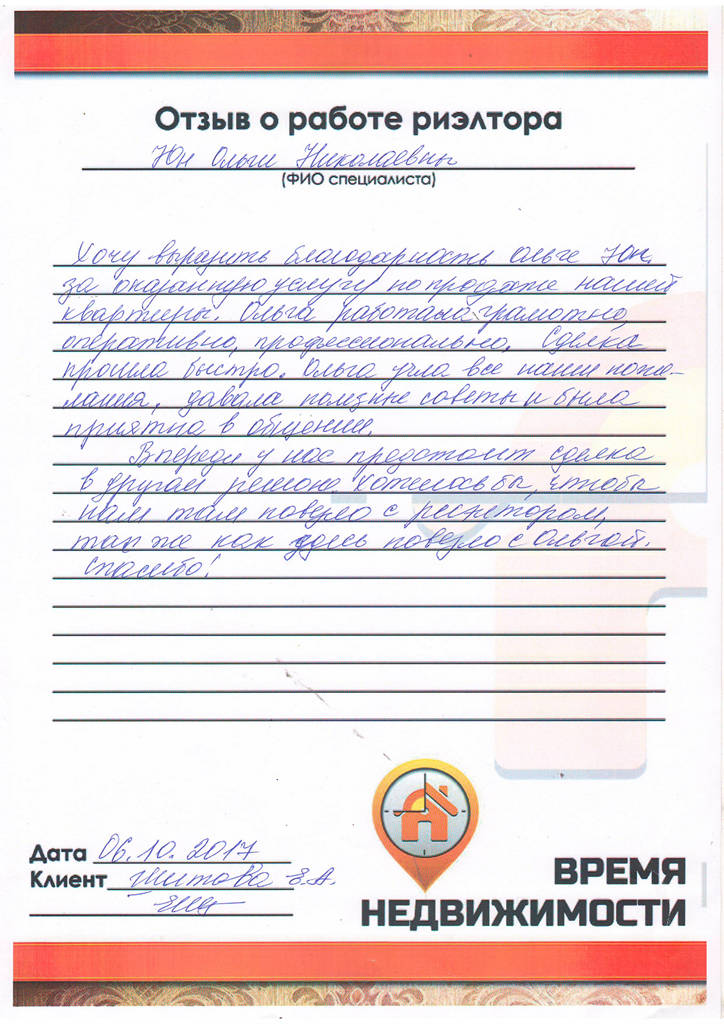 Отзыв о работе риэлтора
Юн Ольги Николаевны
(ФИО специалиста)
Хочу выразить благодарность Ольге Юн,
за оказанную услугу по продаже нашей
квартиры. Ольга работала грамотно,
оперативно, профессионально. Сделка
прошла быстро. Ольга учла все наши поже-
лания, давала полезные советы и была
приятна в общении.
Впереди у нас предстоит сделка
в другом регионе. Хотелось бы, чтобы
нам там повезло с риэлтором,
так же как здесь повезло с Ольгой.
Спасибо!
Дата 06.10.2017
Клиент Шитова Е.А.
ВРЕМЯ
НЕДВИЖИМОСТИ